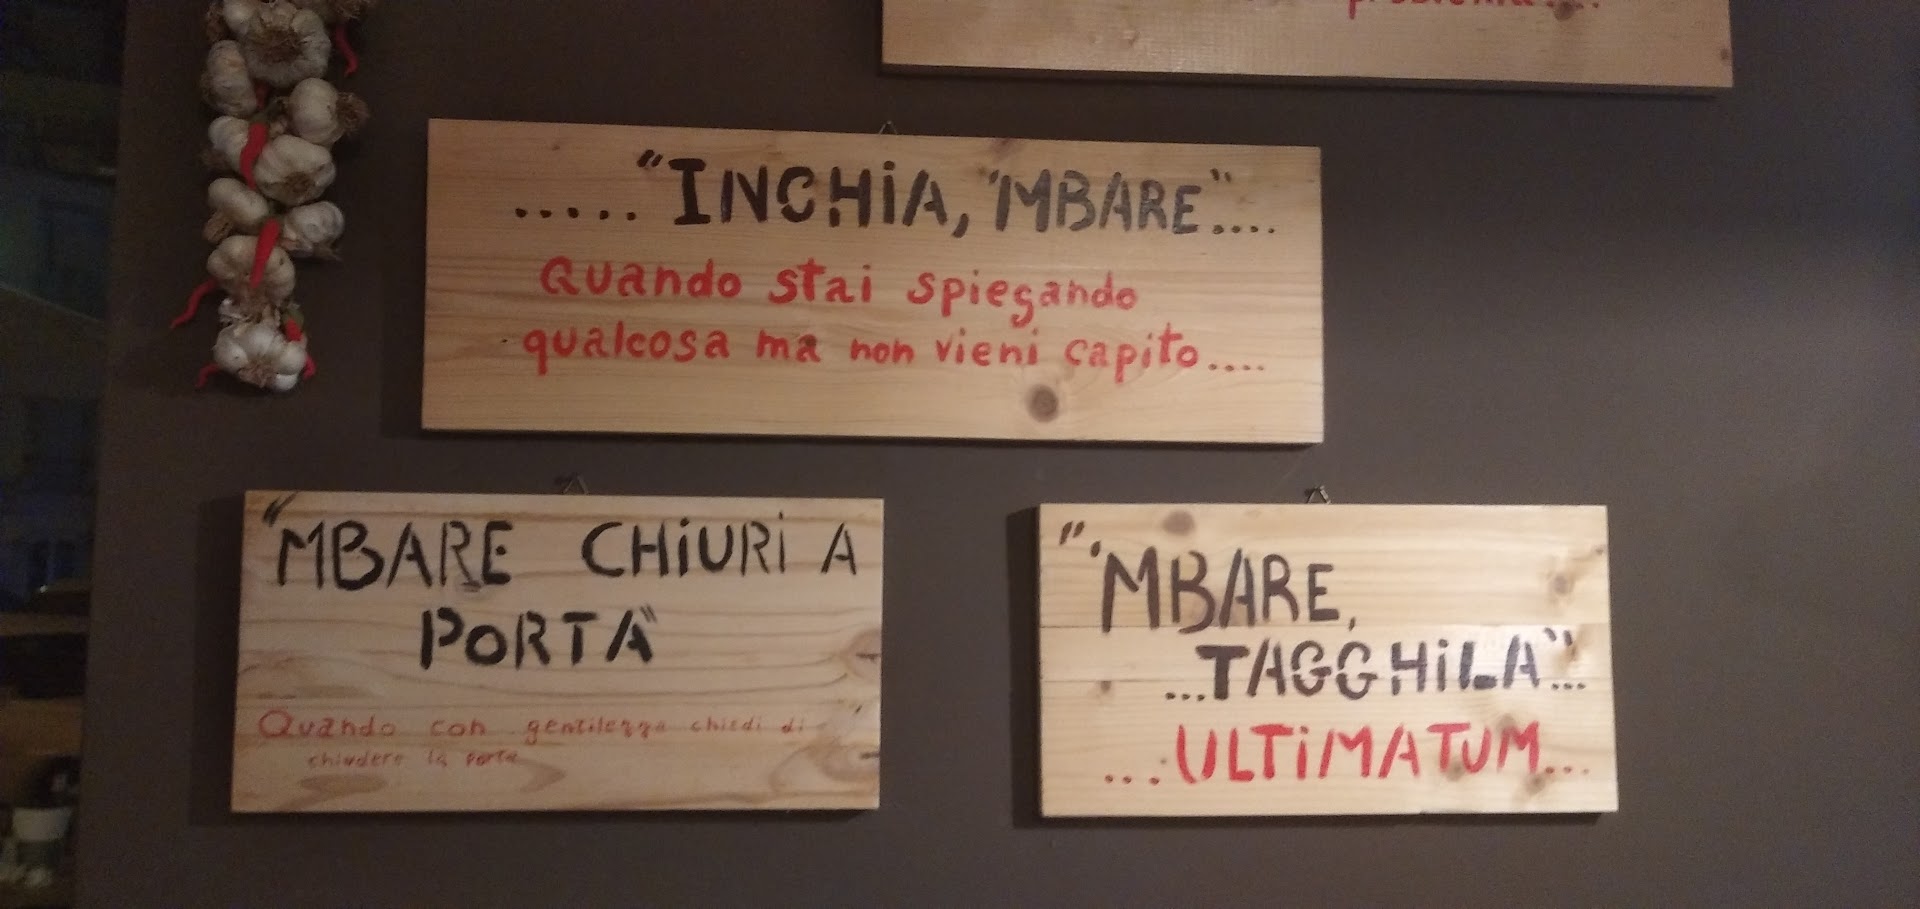 problema....
....."INCHiA, 'MBARE"....
Quando stai spiegando
qualcosa ma non vieni capito....
"'MBARE CHiURi A
PORTA"
Quando con gentilezza chiedi di
chiudere la porta
"'MBARE,
...TAGGHiLA"...
...ULTiMATUM...